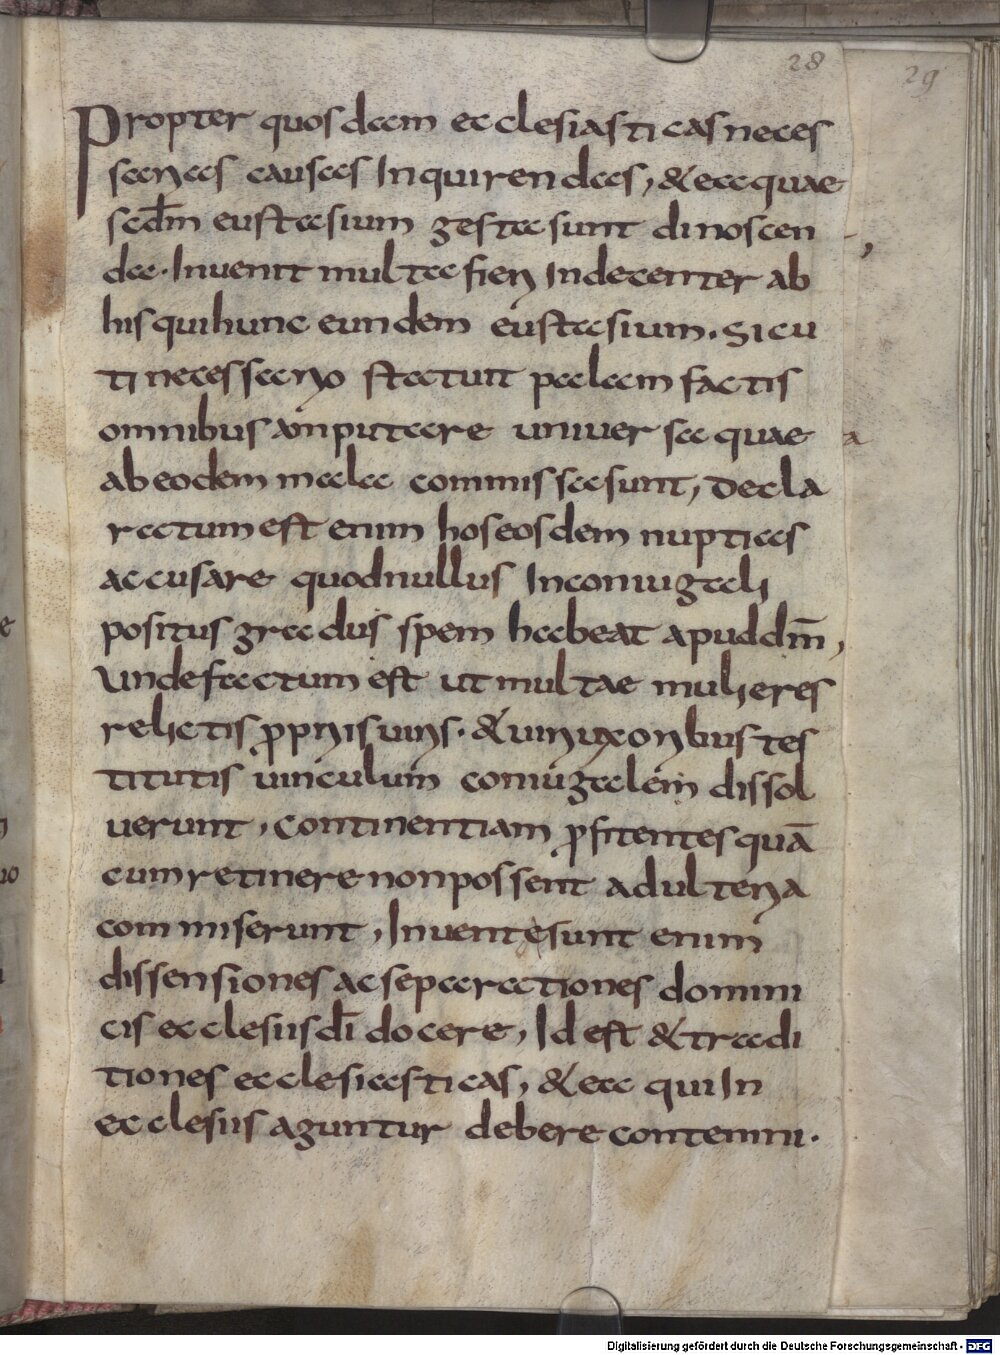 28
29
Propter quosdam ecclesiasticas neces
sarias causas Inquirendas, & ea quae
scdm eustasium gesta sunt dinoscen
da. Invenit multa fieri Indecenter ab
his qui hunc eundem eustasium. Sicu
ti necessario statuit palam factis
omnibus amputare universa quae
ab eodem mala commissa sunt, Decla
ratum est enim hos eosdem nuptias
accusare quod nullus In coniugali
positus gradus spem habeat apud dm̄,
Unde factum est ut multae mulieres
relictis ꝓpriis viris. & viri uxoribus tes
titutis vinculum coniugalem dissol
verunt, Continentiam ꝓfitentes quā
cum retinere non possent adulteria
commiserunt, Inventę sunt enim
dissensiones ac separationes domini
cis ecclesiis dī docere, Id est & tradi
tiones ecclesiasticas, & ea qui In
ecclesiis aguntur debere contemni.
Digitalisierung gefördert durch die Deutsche Forschungsgemeinschaft - DFG